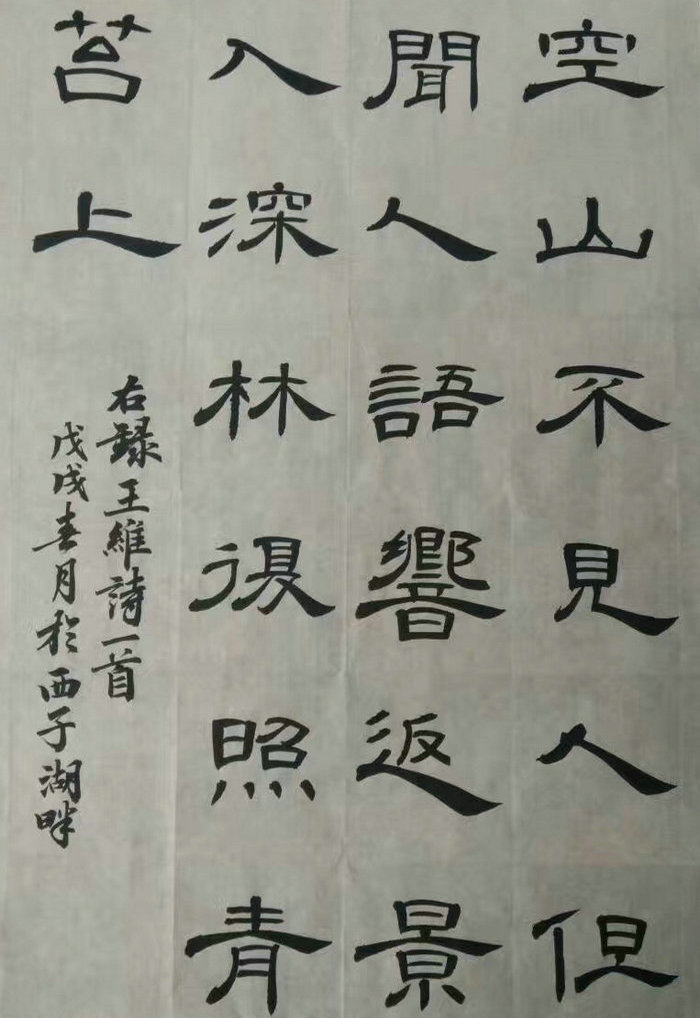 空山不見人但
聞人語響返景
入深林復照青
苔上
右録王維詩一首
戊戌春月於西子湖畔